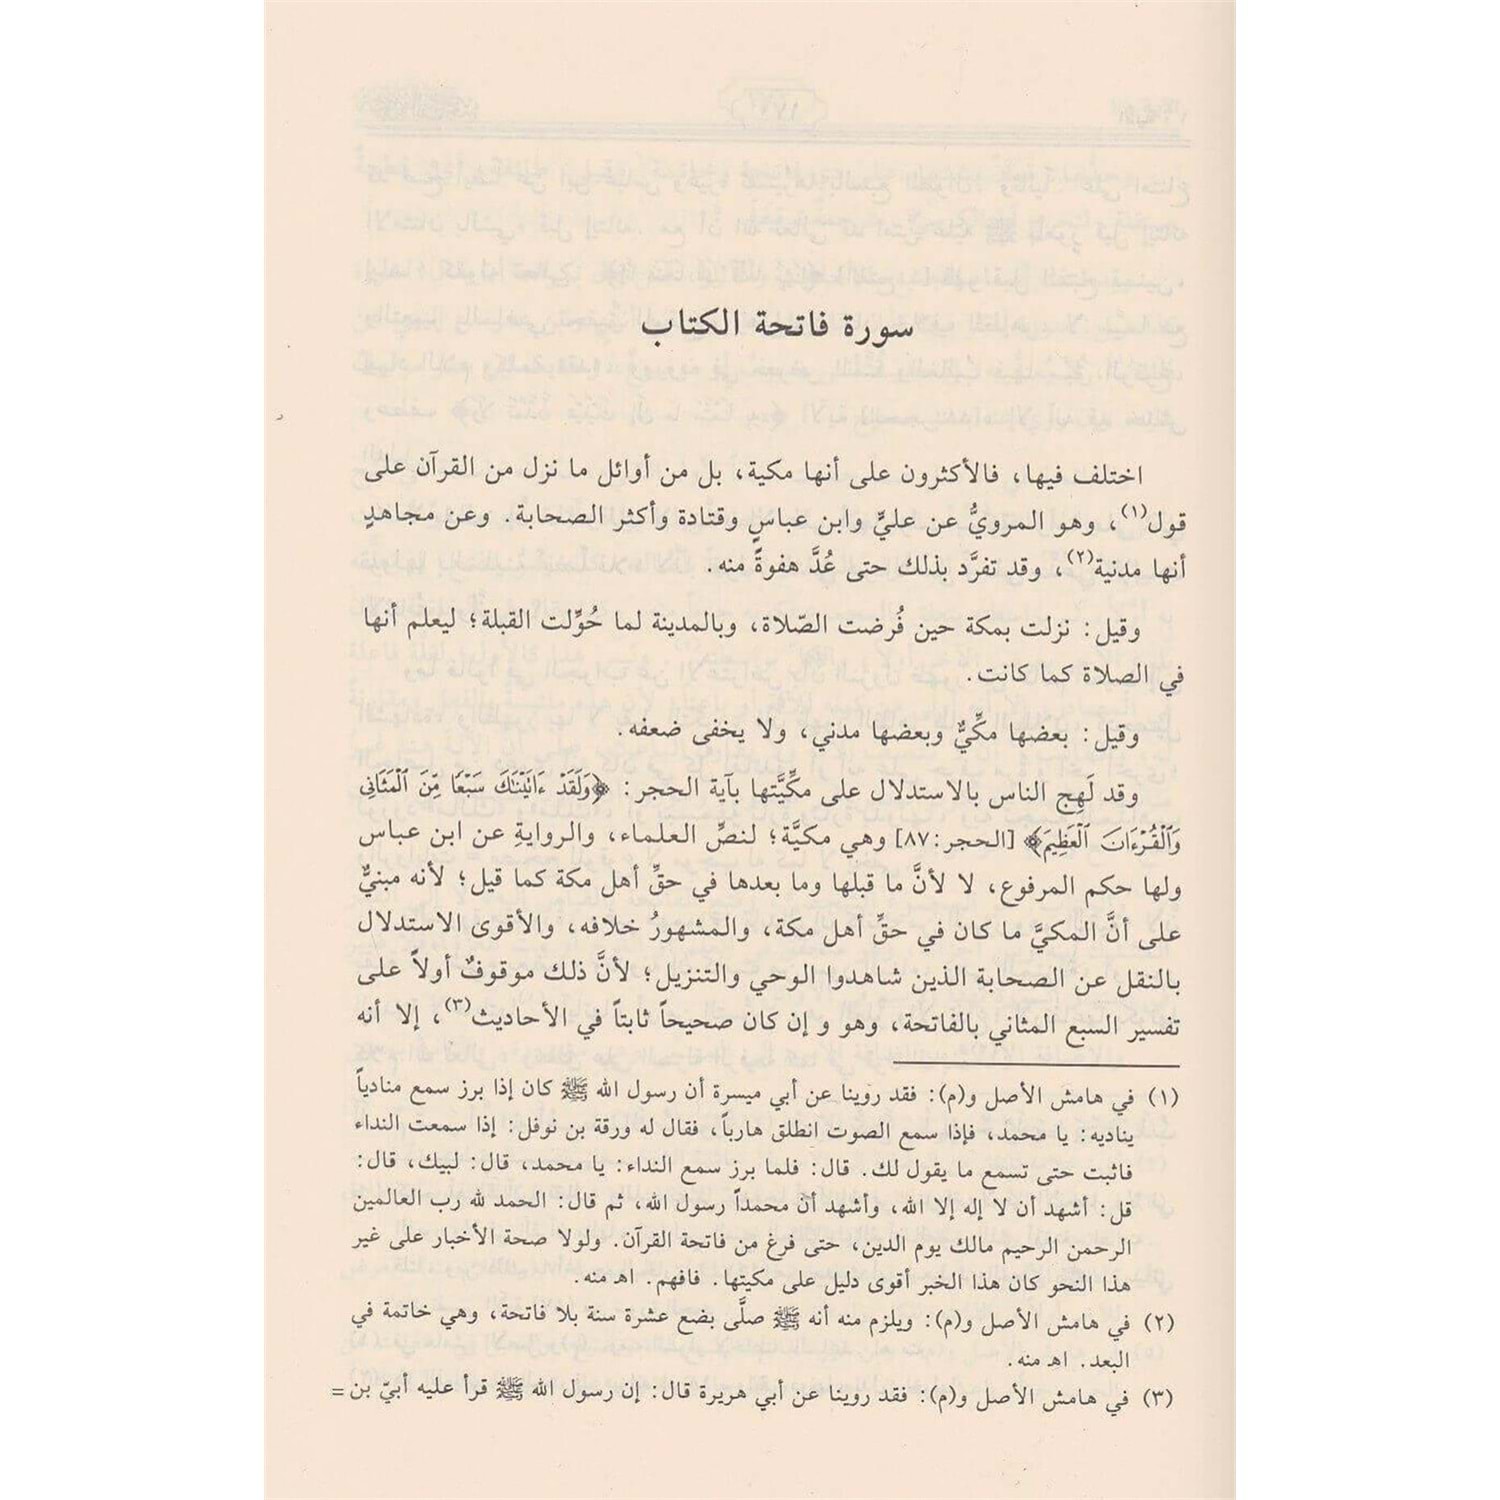 سورة فاتحة الكتاب
اختلف فيها، فالأكثرون على أنها مكية، بل من أوائل ما نزل من القرآن على
قول(١)، وهو المرويُّ عن عليٍّ وابن عباسٍ وقتادة وأكثر الصحابة. وعن مجاهدٍ
أنها مدنية(٢)، وقد تفرَّد بذلك حتى عُدَّ هفوةً منه.
وقيل: نزلت بمكة حين فُرضت الصّلاة، وبالمدينة لما حُوِّلت القبلة؛ ليعلم أنها
في الصلاة كما كانت.
وقيل: بعضها مكِّيٌّ وبعضها مدني، ولا يخفى ضعفه.
وقد لَهِج الناس بالاستدلال على مكِّيَّتها بآية الحجر: ﴿وَلَقَدْ ءَاتَيْنَٰكَ سَبْعًا مِّنَ ٱلْمَثَانِى
وَٱلْقُرْءَانَ ٱلْعَظِيمَ﴾ [الحجر: ٨٧] وهي مكيَّة؛ لنصِّ العلماء، والروايةِ عن ابن عباس
ولها حكم المرفوع، لا لأنَّ ما قبلها وما بعدها في حقِّ أهل مكة كما قيل؛ لأنه مبنيٌّ
على أنَّ المكيَّ ما كان في حقِّ أهل مكة، والمشهورُ خلافه، والأقوى الاستدلال
بالنقل عن الصحابة الذين شاهدوا الوحي والتنزيل؛ لأنَّ ذلك موقوفٌ أولاً على
تفسير السبع المثاني بالفاتحة، وهو و إن كان صحيحاً ثابتاً في الأحاديث(٣)، إلا أنه
(١) في هامش الأصل و(م): فقد روينا عن أبي ميسرة أن رسول الله ﷺ كان إذا برز سمع منادياً
يناديه: يا محمد، فإذا سمع الصوت انطلق هارباً، فقال له ورقة بن نوفل: إذا سمعت النداء
فاثبت حتى تسمع ما يقول لك. قال: فلما برز سمع النداء: يا محمد، قال: لبيك، قال:
قل: أشهد أن لا إله إلا الله، وأشهد أن محمداً رسول الله، ثم قال: الحمد لله رب العالمين
الرحمن الرحيم مالك يوم الدين، حتى فرغ من فاتحة القرآن. ولولا صحة الأخبار على غير
هذا النحو كان هذا الخبر أقوى دليل على مكيتها. فافهم. اهـ منه.
(٢) في هامش الأصل و(م): ويلزم منه أنه ﷺ صلَّى بضع عشرة سنة بلا فاتحة، وهي خاتمة في
البعد. اهـ منه.
(٣) في هامش الأصل و(م): فقد روينا عن أبي هريرة قال: إن رسول الله ﷺ قرأ عليه أبيّ بن =